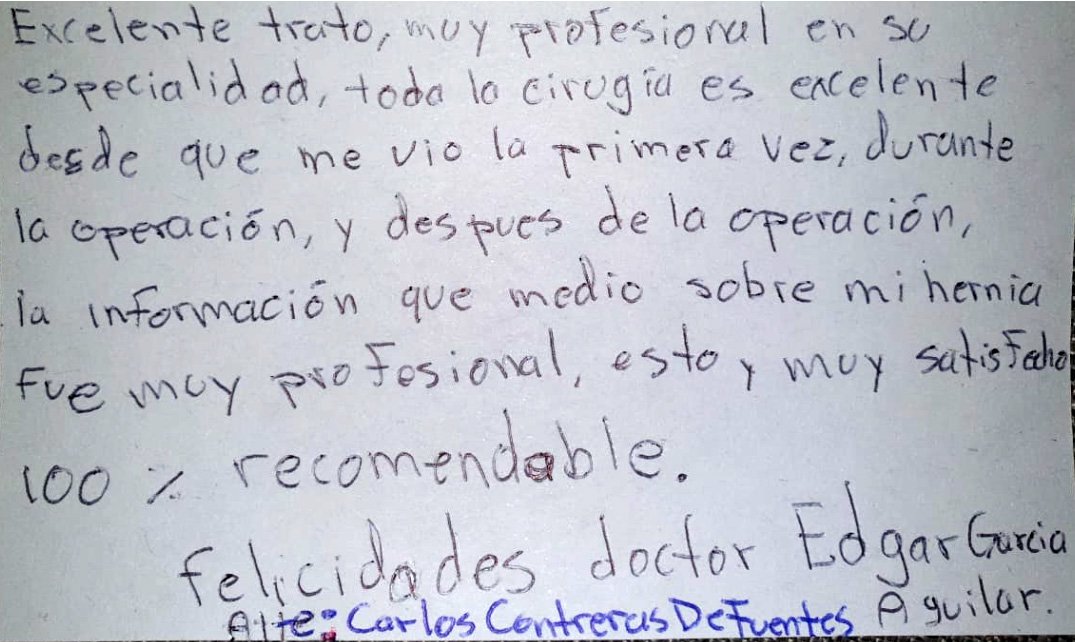 Excelente trato, muy profesional en su
especialidad, toda la cirugía es excelente
desde que me vio la primera vez, durante
la operación, y despues de la operación,
la información que medio sobre mi hernia
fue muy profesional, estoy muy satisfecho
100 % recomendable.
felicidades doctor Edgar Garcia
Aguilar.
Atte: Carlos Contreras De Fuentes